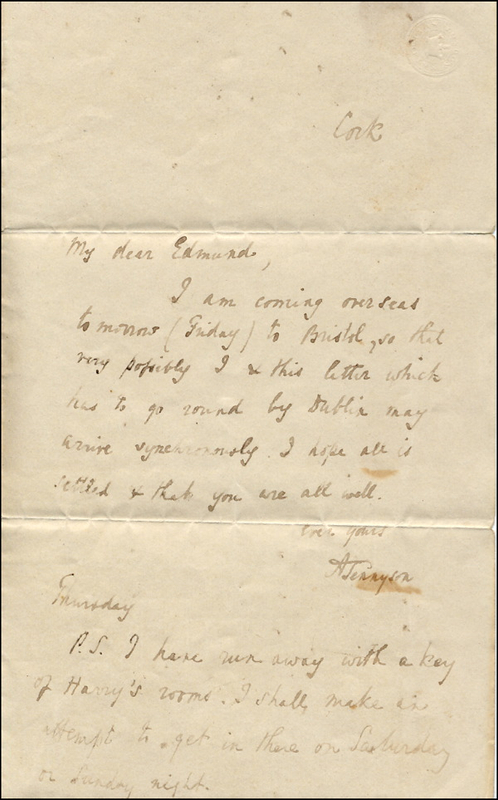 Cork
My dear Edmund,
I am coming overseas
tomorrow (Friday) to Bristol, so that
very possibly I & this letter which
has to go round by Dublin may
arrive synchronously. I hope all is
settled & that you are all well.
Ever yours
ATennyson
Thursday
P.S. I have run away with a key
of Harry's rooms. I shall make an
attempt to get in there on Saturday
or Sunday night.